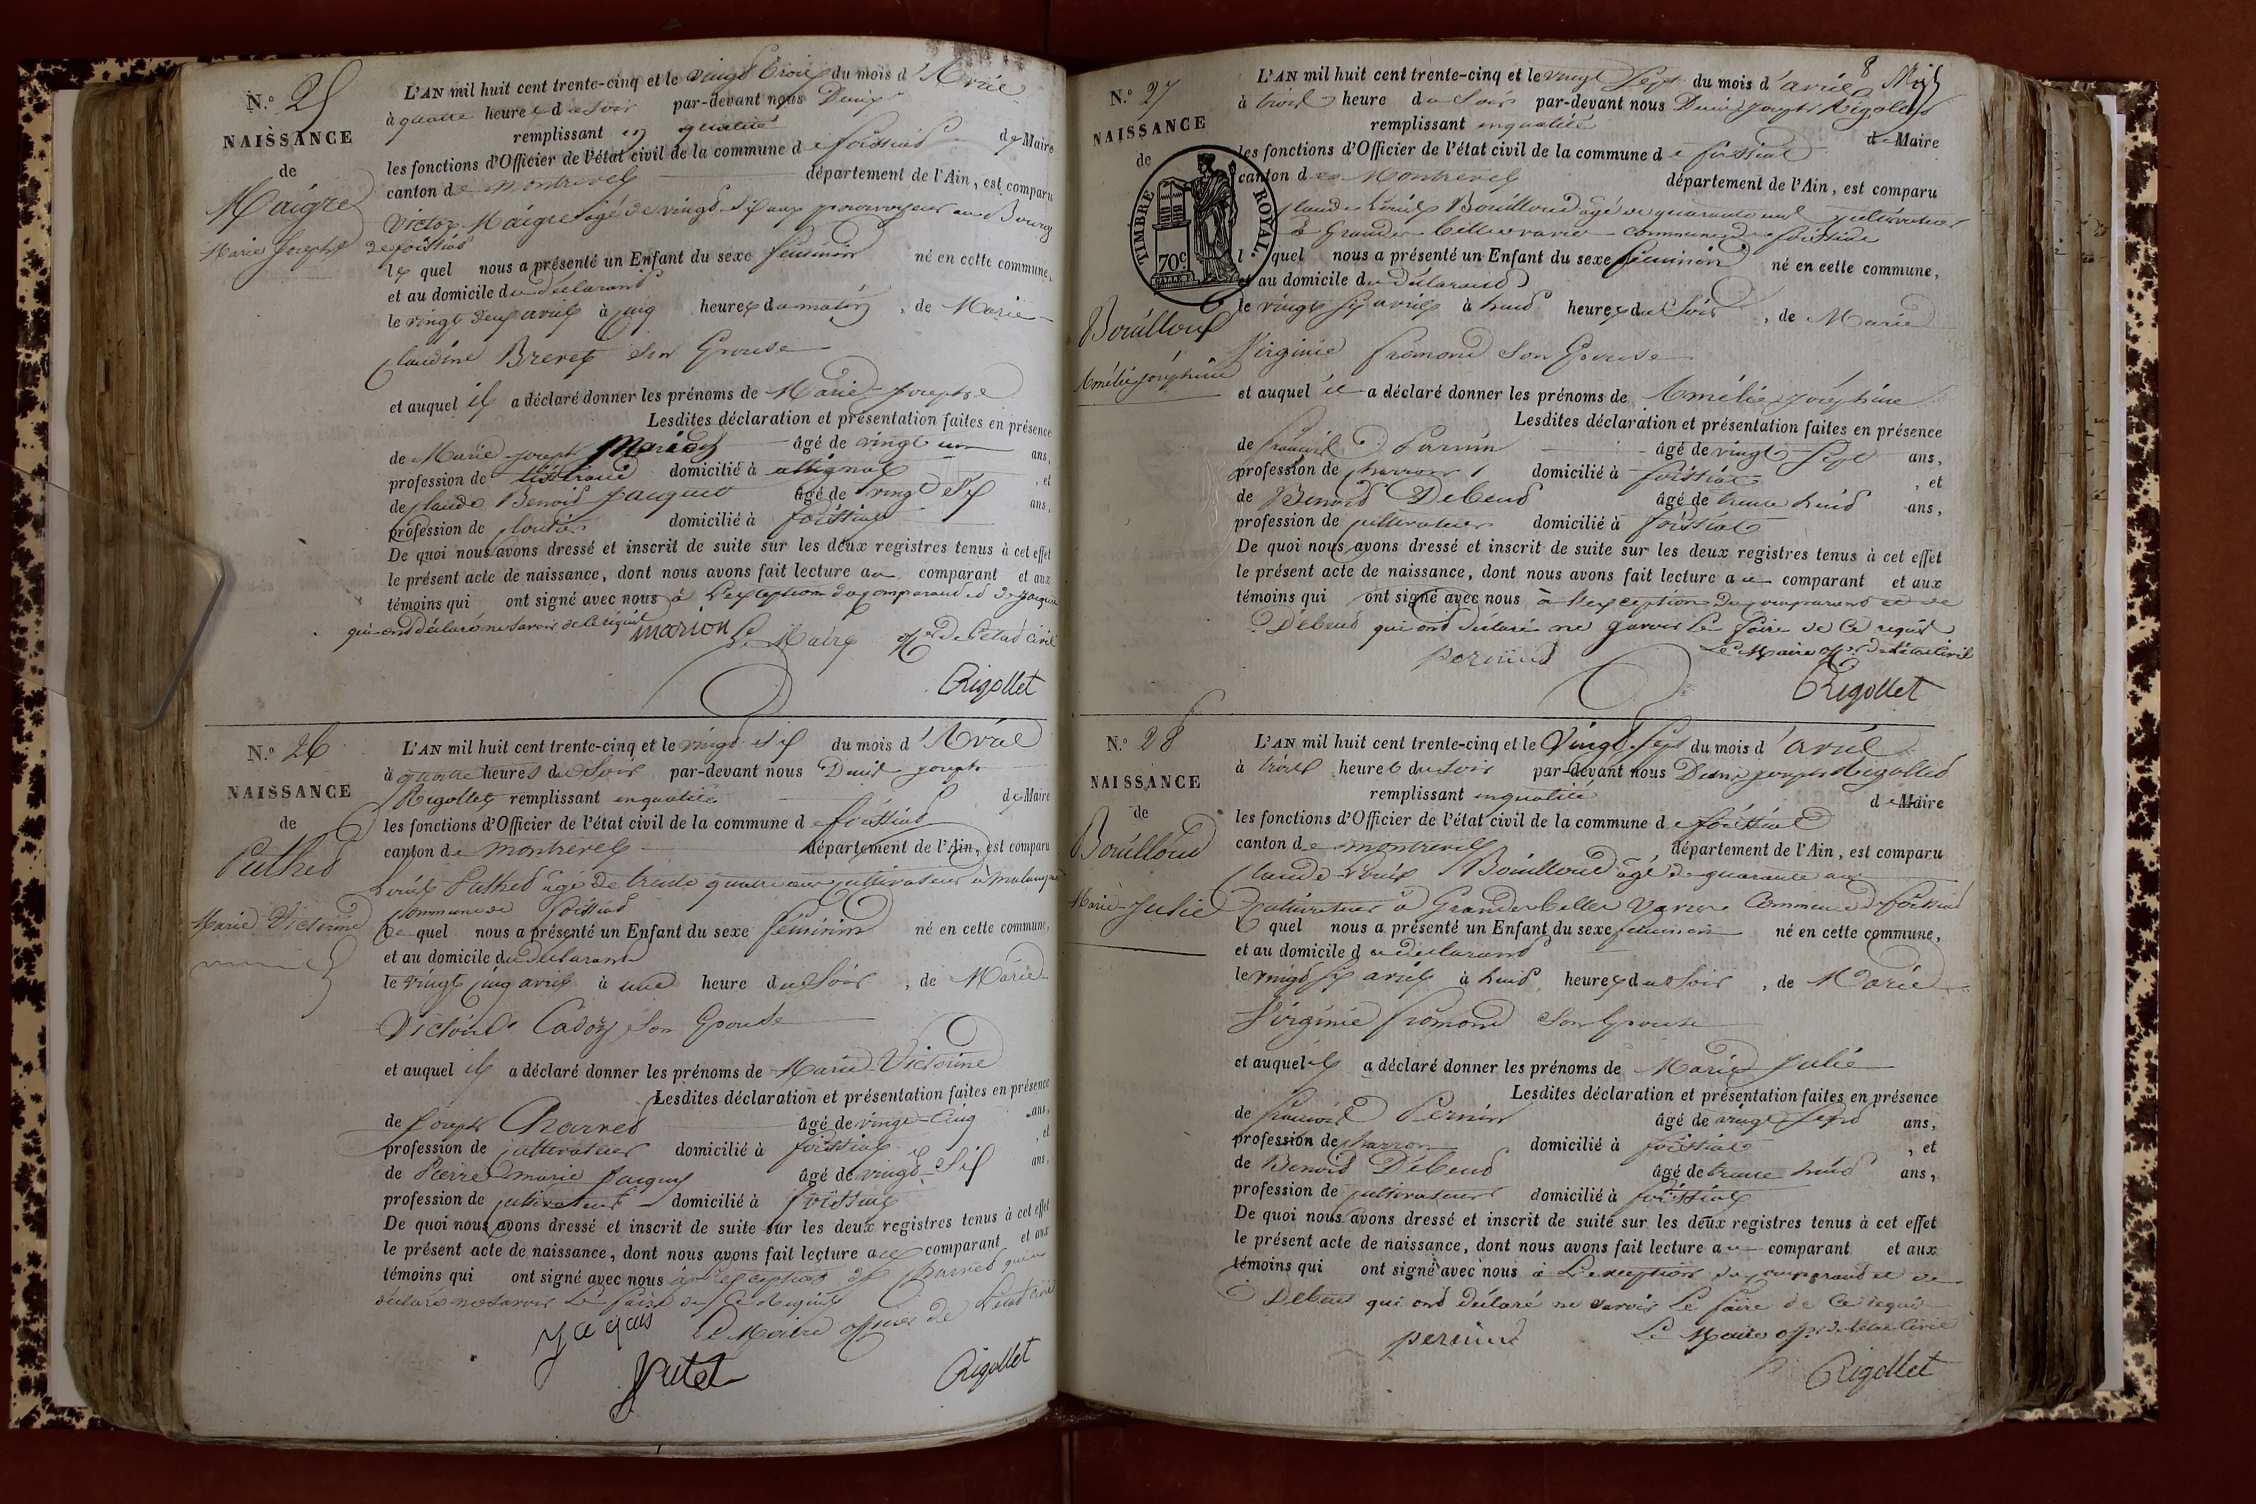 N.° 25
NAISSANCE
de
Maigre
Marie Josephte
L'AN mil huit cent trente-cinq et le vingt trois du mois d'Avril
à quatre heures du soir par-devant nous Denis
remplissant en qualité de Maire
les fonctions d'Officier de l'état civil de la commune de foissiat
canton de montrevel département de l'Ain, est comparu
Victor Maigre agé de vingt six ans au Bourg
de foissiat
le quel nous a présenté un Enfant du sexe féminin né en cette commune,
et au domicile du déclarant
le vingt deux avril à cinq heures du matin, de Marie
Claudine Brevet son Epouse
et auquel il a déclaré donner les prénoms de Marie Josephte
Lesdites déclaration et présentation faites en présence
de Marie joseph Marion âgé de vingt un ans,
profession de domicilié à attignat, et
de Claude Benoit Jacquet âgé de vingt six ans,
profession de cloutier domicilié à foissiat
De quoi nous avons dressé et inscrit de suite sur les deux registres tenus à cet effet
le présent acte de naissance, dont nous avons fait lecture au comparant et aux
témoins qui ont signé avec nous à l'exception du comparant et de Jacquet
qui ont déclaré ne savoir de ce requis
marion Le Maire off.er de l'état civil
Rigollet
N.° 26
NAISSANCE
de
Puthet
Marie Victorine
L'AN mil huit cent trente-cinq et le vingt six du mois d'Avril
à quatre heures du soir par-devant nous Denis joseph
Rigollet remplissant en qualité de Maire
les fonctions d'Officier de l'état civil de la commune de foissiat
canton de montrevel département de l'Ain, est comparu
Louis Puthet âgé de trente quatre ans cultivateur à
commune de foissiat
Le quel nous a présenté un Enfant du sexe féminin né en cette commune,
et au domicile du déclarant
le vingt cinq avril à une heure du soir, de Marie
Victoire Cadoz son Epouse
et auquel il a déclaré donner les prénoms de Marie Victorine
Lesdites déclaration et présentation faites en présence
de Joseph Charvet âgé de vingt-cinq ans,
profession de cultivateur domicilié à foissiat, et
de Pierre marie Jacquy âgé de vingt six ans,
profession de cultivateur domicilié à foissiat
De quoi nous avons dressé et inscrit de suite sur les deux registres tenus à cet effet
le présent acte de naissance, dont nous avons fait lecture au comparant et aux
témoins qui ont signé avec nous à l'exception de Charvet qui a
déclaré ne savoir le faire de ce requis
Le Maire officier de l'état civil
Putet Rigollet
8
N.° 27
NAISSANCE
de
TIMBRE ROYAL.
70c
Bouilloux
Amélie Joséphine
L'AN mil huit cent trente-cinq et le vingt sept du mois d'avril
à trois heure du soir par-devant nous Denis joseph Rigollet
remplissant en qualité de Maire
les fonctions d'Officier de l'état civil de la commune de foissiat
canton de Montrevel département de l'Ain, est comparu
Claude Louis Bouilloud âgé de quarante ans cultivateur
à Grande Bellevavre commune de foissiat
l quel nous a présenté un Enfant du sexe féminin né en cette commune,
et au domicile du déclarant
le vingt six avril à huit heures du soir, de Marie
Virginie fromond son Epouse
et auquel il a déclaré donner les prénoms de Amélie joséphine
Lesdites déclaration et présentation faites en présence
de françois Pernin âgé de vingt sept ans,
profession de charron domicilié à foissiat, et
de Benoit Debeud âgé de trente huit ans,
profession de cultivateur domicilié à foissiat
De quoi nous avons dressé et inscrit de suite sur les deux registres tenus à cet effet
le présent acte de naissance, dont nous avons fait lecture au comparant et aux
témoins qui ont signé avec nous à l'exception du comparant et de
Debeud qui ont déclaré ne savoir le faire de ce requis
Le Maire off.r de l'état civil
Rigollet
N.° 28
NAISSANCE
de
Bouilloud
Marie-Julie
L'AN mil huit cent trente-cinq et le vingt sept du mois d'avril
à trois heures du soir par-devant nous Denis joseph Rigollet
remplissant en qualité de Maire
les fonctions d'Officier de l'état civil de la commune de foissiat
canton de montrevel département de l'Ain, est comparu
Claude Louis Bouilloud âgé de quarante ans
cultivateur à Grande belle vavre commune de foissiat
l quel nous a présenté un Enfant du sexe féminin né en cette commune,
et au domicile du déclarant
le vingt six avril à huit heures du soir, de Marie
Virginie fromond son Epouse
et auquel il a déclaré donner les prénoms de Marie Julie
Lesdites déclaration et présentation faites en présence
de françois Pernin âgé de vingt sept ans,
profession de charron domicilié à foissiat, et
de Benoit Debeud âgé de trente huit ans,
profession de cultivateur domicilié à foissiat
De quoi nous avons dressé et inscrit de suite sur les deux registres tenus à cet effet
le présent acte de naissance, dont nous avons fait lecture au comparant et aux
témoins qui ont signé avec nous à L'exception du comparant et de
Debeud qui ont déclaré ne savoir Le faire de ce requis
Le Maire off.r de l'état civil
Rigollet